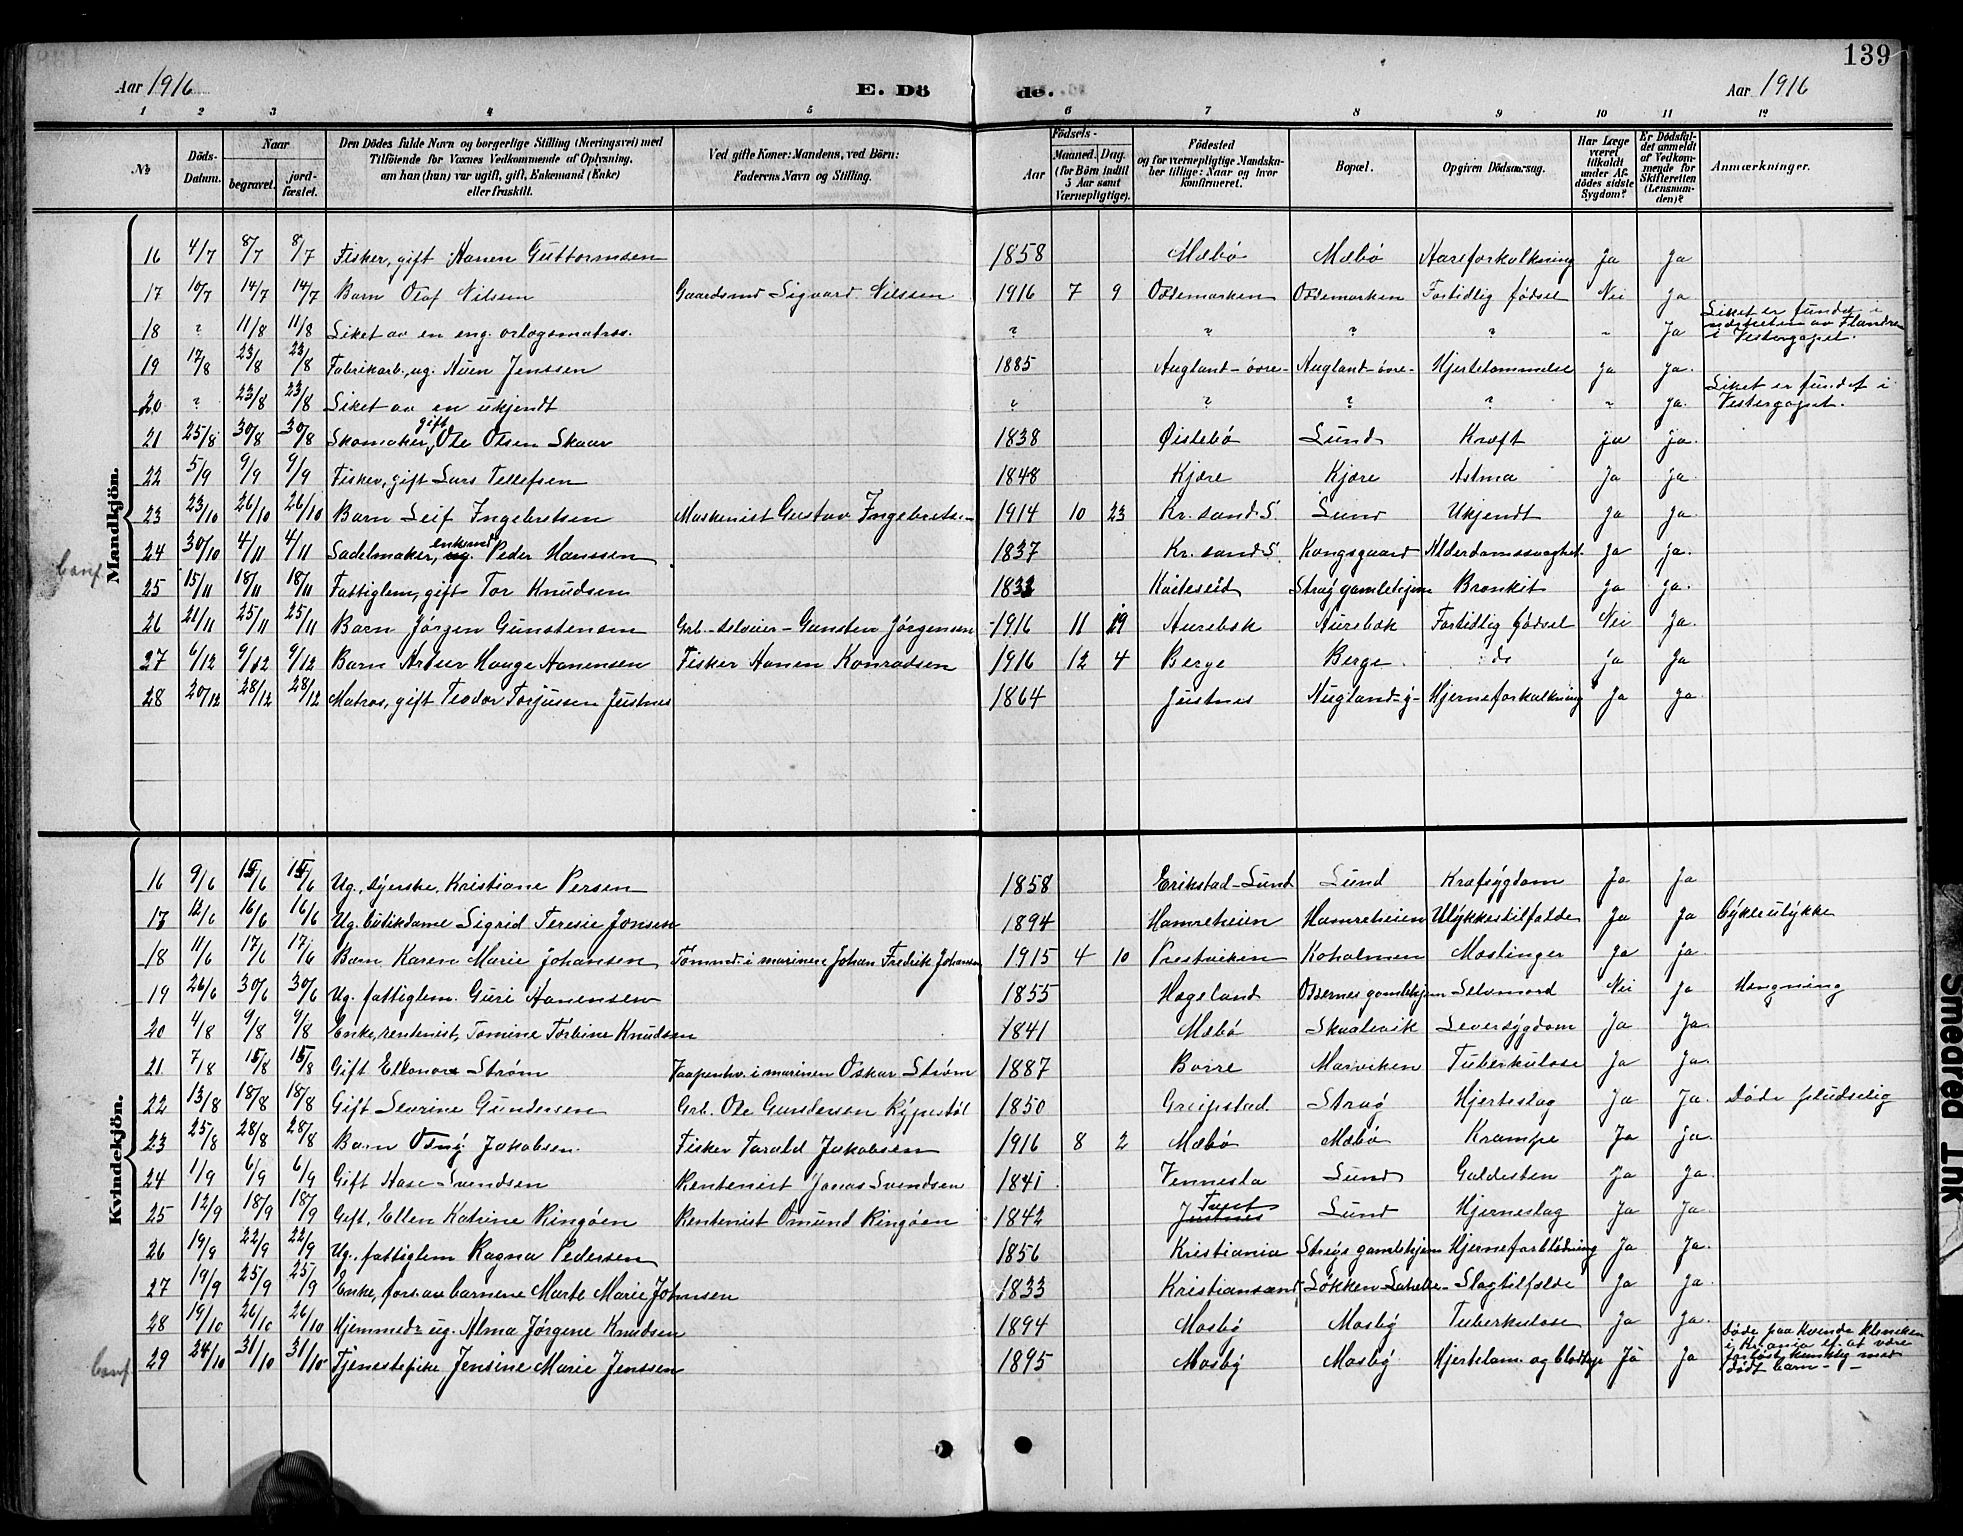 139
Aar 1916 E. Dö de. Aar 1916
1 2 3 4 5 6 7 8 9 10 11 12
No. Döds-Datum. Naar begravet. jord-fæstet. Den Dödes fulde Navn og borgerlige Stilling (Næringsvei) med Tilföiende for Voxnes Vedkommende af Oplysning, om han (hun) var ugift, gift, Enkemand (Enke) eller fraskilt. Ved gifte Koner: Mandens, ved Börn: Faderens Navn og Stilling. Födsels- Aar Maaned. Dag. (for Börn indtil 5 Aar samt Værnepligtige). Födested og for værnepligtige Mandskaber tillige: Naar og hvor konfirmeret. Bopæl. Opgiven Dödsaarsag. Har Læge været tilkaldt under Afdödes sidste Sygdom? Er Dödsfaldet anmeldt af Vedkommende for Skifteretten (Lensmanden)? Anmærkninger.
Mandkjön.
16 4/7 8/7 8/7 Fisker, gift Hanen Guttormsen 1858 Mæbö Mæbö Aareforkalkning Ja Ja
17 10/7 14/7 14/7 Barn Olaf Nilsen Gaardsmd Sigvard Nilssen 1916 7 9 Oddemarken Oddemarken Fortidlig fødsel Nei Ja
18 ? 11/8 11/8 Liket av en eng. orlogsmatros. ? " ? " " Ja Liket er fundet i nærheten av Flandren i Vestergapet.
19 17/8 23/8 23/8 Fabrikarb., ug. Aven Jenssen 1885 Augland-övre- Augland-övre- Hjertelammelse Ja Ja.
20 ? 23/8 23/8 Liket av en ukjendt ? ? ? ? " ja. Liket er fundet i Vestergapet.
21 25/8 30/8 30/8 Skomaker, gift Ole Olsen Skaar 1838 Øislebö Lund Kræft ja ja.
22 5/9 9/9 9/9 Fisker, gift Lars Tellefsen 1848 Kjære Kjære Astma Ja ja.
23 23/10 26/10 26/10 Barn Leif Ingebretsen Maskenist Gustav Ingebrets.- 1914 10 23 Kr.sand S. Lund Ukjendt Ja Ja.
24 30/10 4/11 4/11 Sadelmaker, enkemd Peder Hanssen 1837 Kr. sand S. Kongsgaard Alderdomssvaghet Ja Ja.
25 15/11 18/11 18/11 Fattiglem, gift Tor Knudsen Straj gamlehjem Bronkit Ja Ja.
26 21/11 25/11 25/11 Barn Jörgen Gunstensen Grb.-selveier-Gunsten Jörgensen 1916 11 19 Aurebæk Aurebæk Fortidlig fødsel Nei Ja.
27 6/12 9/12 9/12 Barn Hauge Hanensen Fisker Hanen Konradsen 1916 12 4 Berge Berge do Ja Ja
28 20/12 28/12 28/12 Matros, gift Teodor Torjussen Justnes 1864 Justnes Augland-y- Hjerneforkalkning Ja Ja
Kvindekjön.
16 9/6 15/6 15/6 Ug., syerske, Kristiane Persen 1858 Erikstad-Lund Lund Kræfsygdom Ja Ja
17 12/6 16/6 16/6 Ug. butikdame Sigrid Teresie Jonsen 1894 Hamreheien Hamreheien Ulykkestilfælde Ja Ja Cykleulykke
18 11/6 17/6 17/6 Barn Karen Marie Johansen Tömmd. i marinen Johan Fredrik Johansen 1915 4 10 Prestviken Koholmen Meslinger Ja ja
19 26/6 30/6 30/6 Ug. fattiglem. Guri Hanensen 1855 Hægeland Oddernes gamlehjem Selvmord Nei ja Hengning
20 4/8 9/8 9/8 Enke, rentenist, Tomine Torbine Knudsen 1841 Mæbö Skaalevik Leversygdom Ja Ja.
21 7/8 15/8 15/8 Gift Ellenore Strøm Vaapenhv. i marinen Oskar Strøm 1887 Borre Marviken Tuberkulose Ja Ja.
22 13/8 18/8 18/8 Gift Severine Gundersen Grb. Ole Gundersen Rypestöl 1850 Greipstad Straö Hjerteslag Ja Ja. Døde pludselig
23 25/8 28/8 28/8 Barn Osny Jakobsen. Fisker Tarald Jakobsen 1916 8 2 Mæbö Mæbö Krampe Ja ja.
24 1/9 6/9 6/9 Gift Aase Svendsen Rentenist Jonas Svendsen 1841 Vennesla Lund Galdesten Ja Ja.
25 12/9 18/9 18/9 Gift. Ellen Katrine Ringöen Rentenist Omund Ringöen 1842 Tveit Justnes Lund Hjerneslag Ja Ja.
26 19/9 22/9 22/9 Ug., fattiglem Ragna Pedersen 1856 Kristiania Strays gamlehjem Hjerneforblödning Ja Ja.
27 19/9 25/9 25/9 Enke, fors. av barnene Marte Marie Johnsen 1833 Kristiansand Slagtilfælde Ja Ja.
28 19/10 26/10 26/10 Hjemmed. ug. Alma Jörgine Knudsen 1894 Mosby Mosby Tuberkulose Ja Ja.
29 24/10 31/10 31/10 Tjenestepike, Jensine Marie Jenssen 1895 Mosby Mosby Hjertelam. og blodtap Ja Ja Døde paa Kvinde kliniken i Kr.ania ef. at være med dødt barn-"-
Smeared Ink